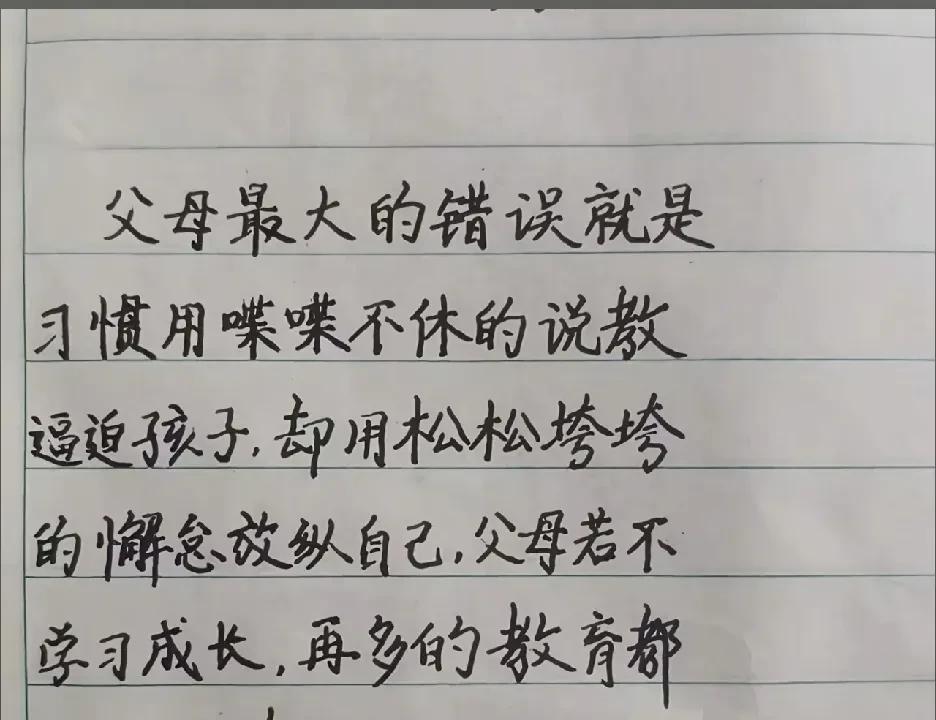 父母最大的错误就是
习惯用喋喋不休的说教
逼迫孩子,却用松松垮垮
的懈怠放纵自己,父母若不
学习成长,再多的教育都